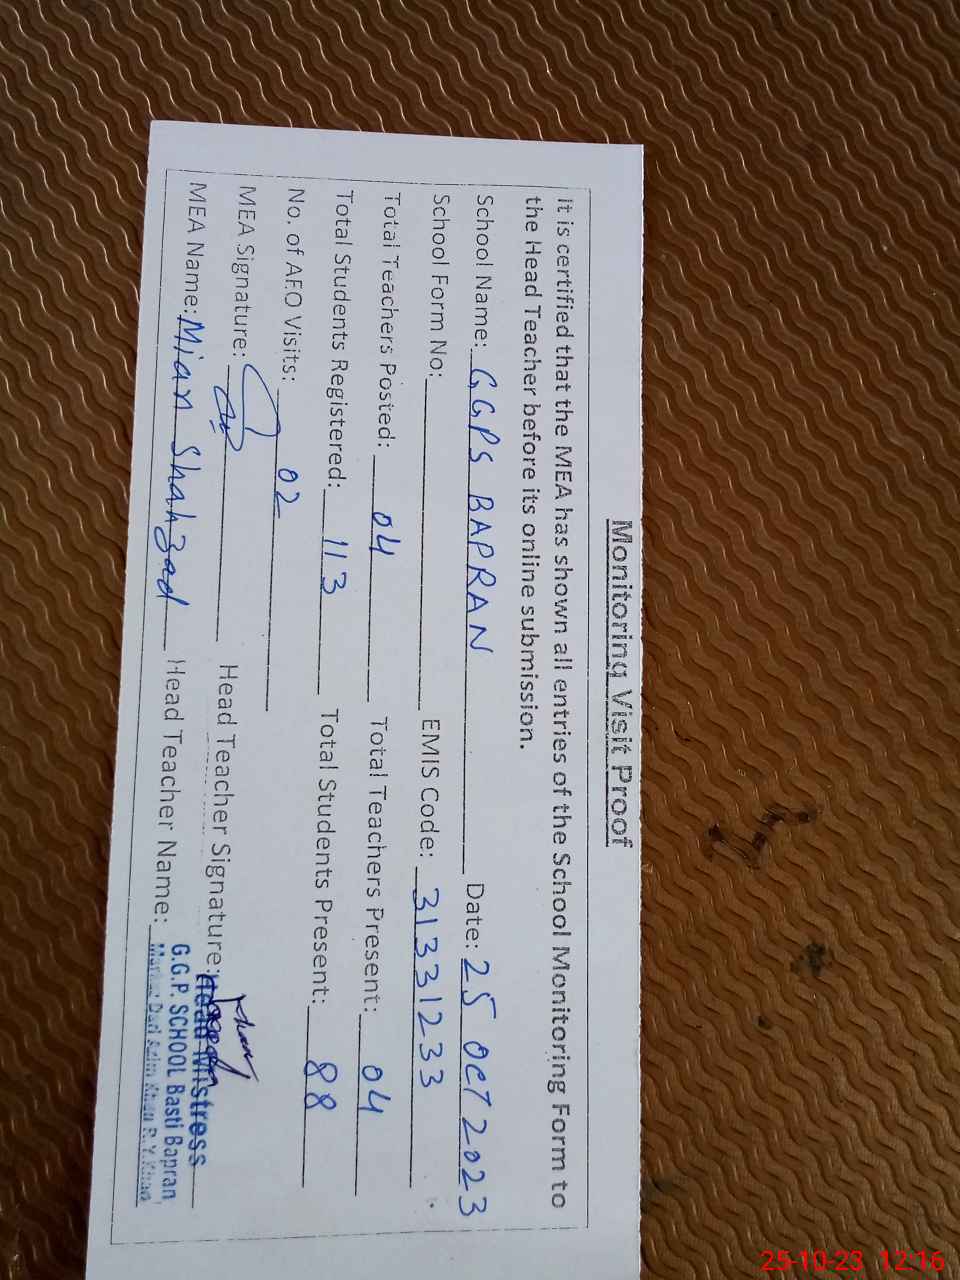 Monitoring Visit Proof
It is certified that the MEA has shown all entries of the School Monitoring Form to
the Head Teacher before its online submission.
School Name: G.G.P.S BAPRAN Date: 25 OCT 2023
School Form No: EMIS Code: 31331233
Total Teachers Posted: 04 Total Teachers Present: 04
Total Students Registered: 113 Total Students Present: 88
No. of AEO Visits: 02
MEA Signature: Head Teacher Signature: Head Mistress
MEA Name: Mian Shahzad Head Teacher Name: G.G.P. SCHOOL Basti Bapran
Markaz Dari Azim Khan R.Y.Khan
25-10-23 12:16